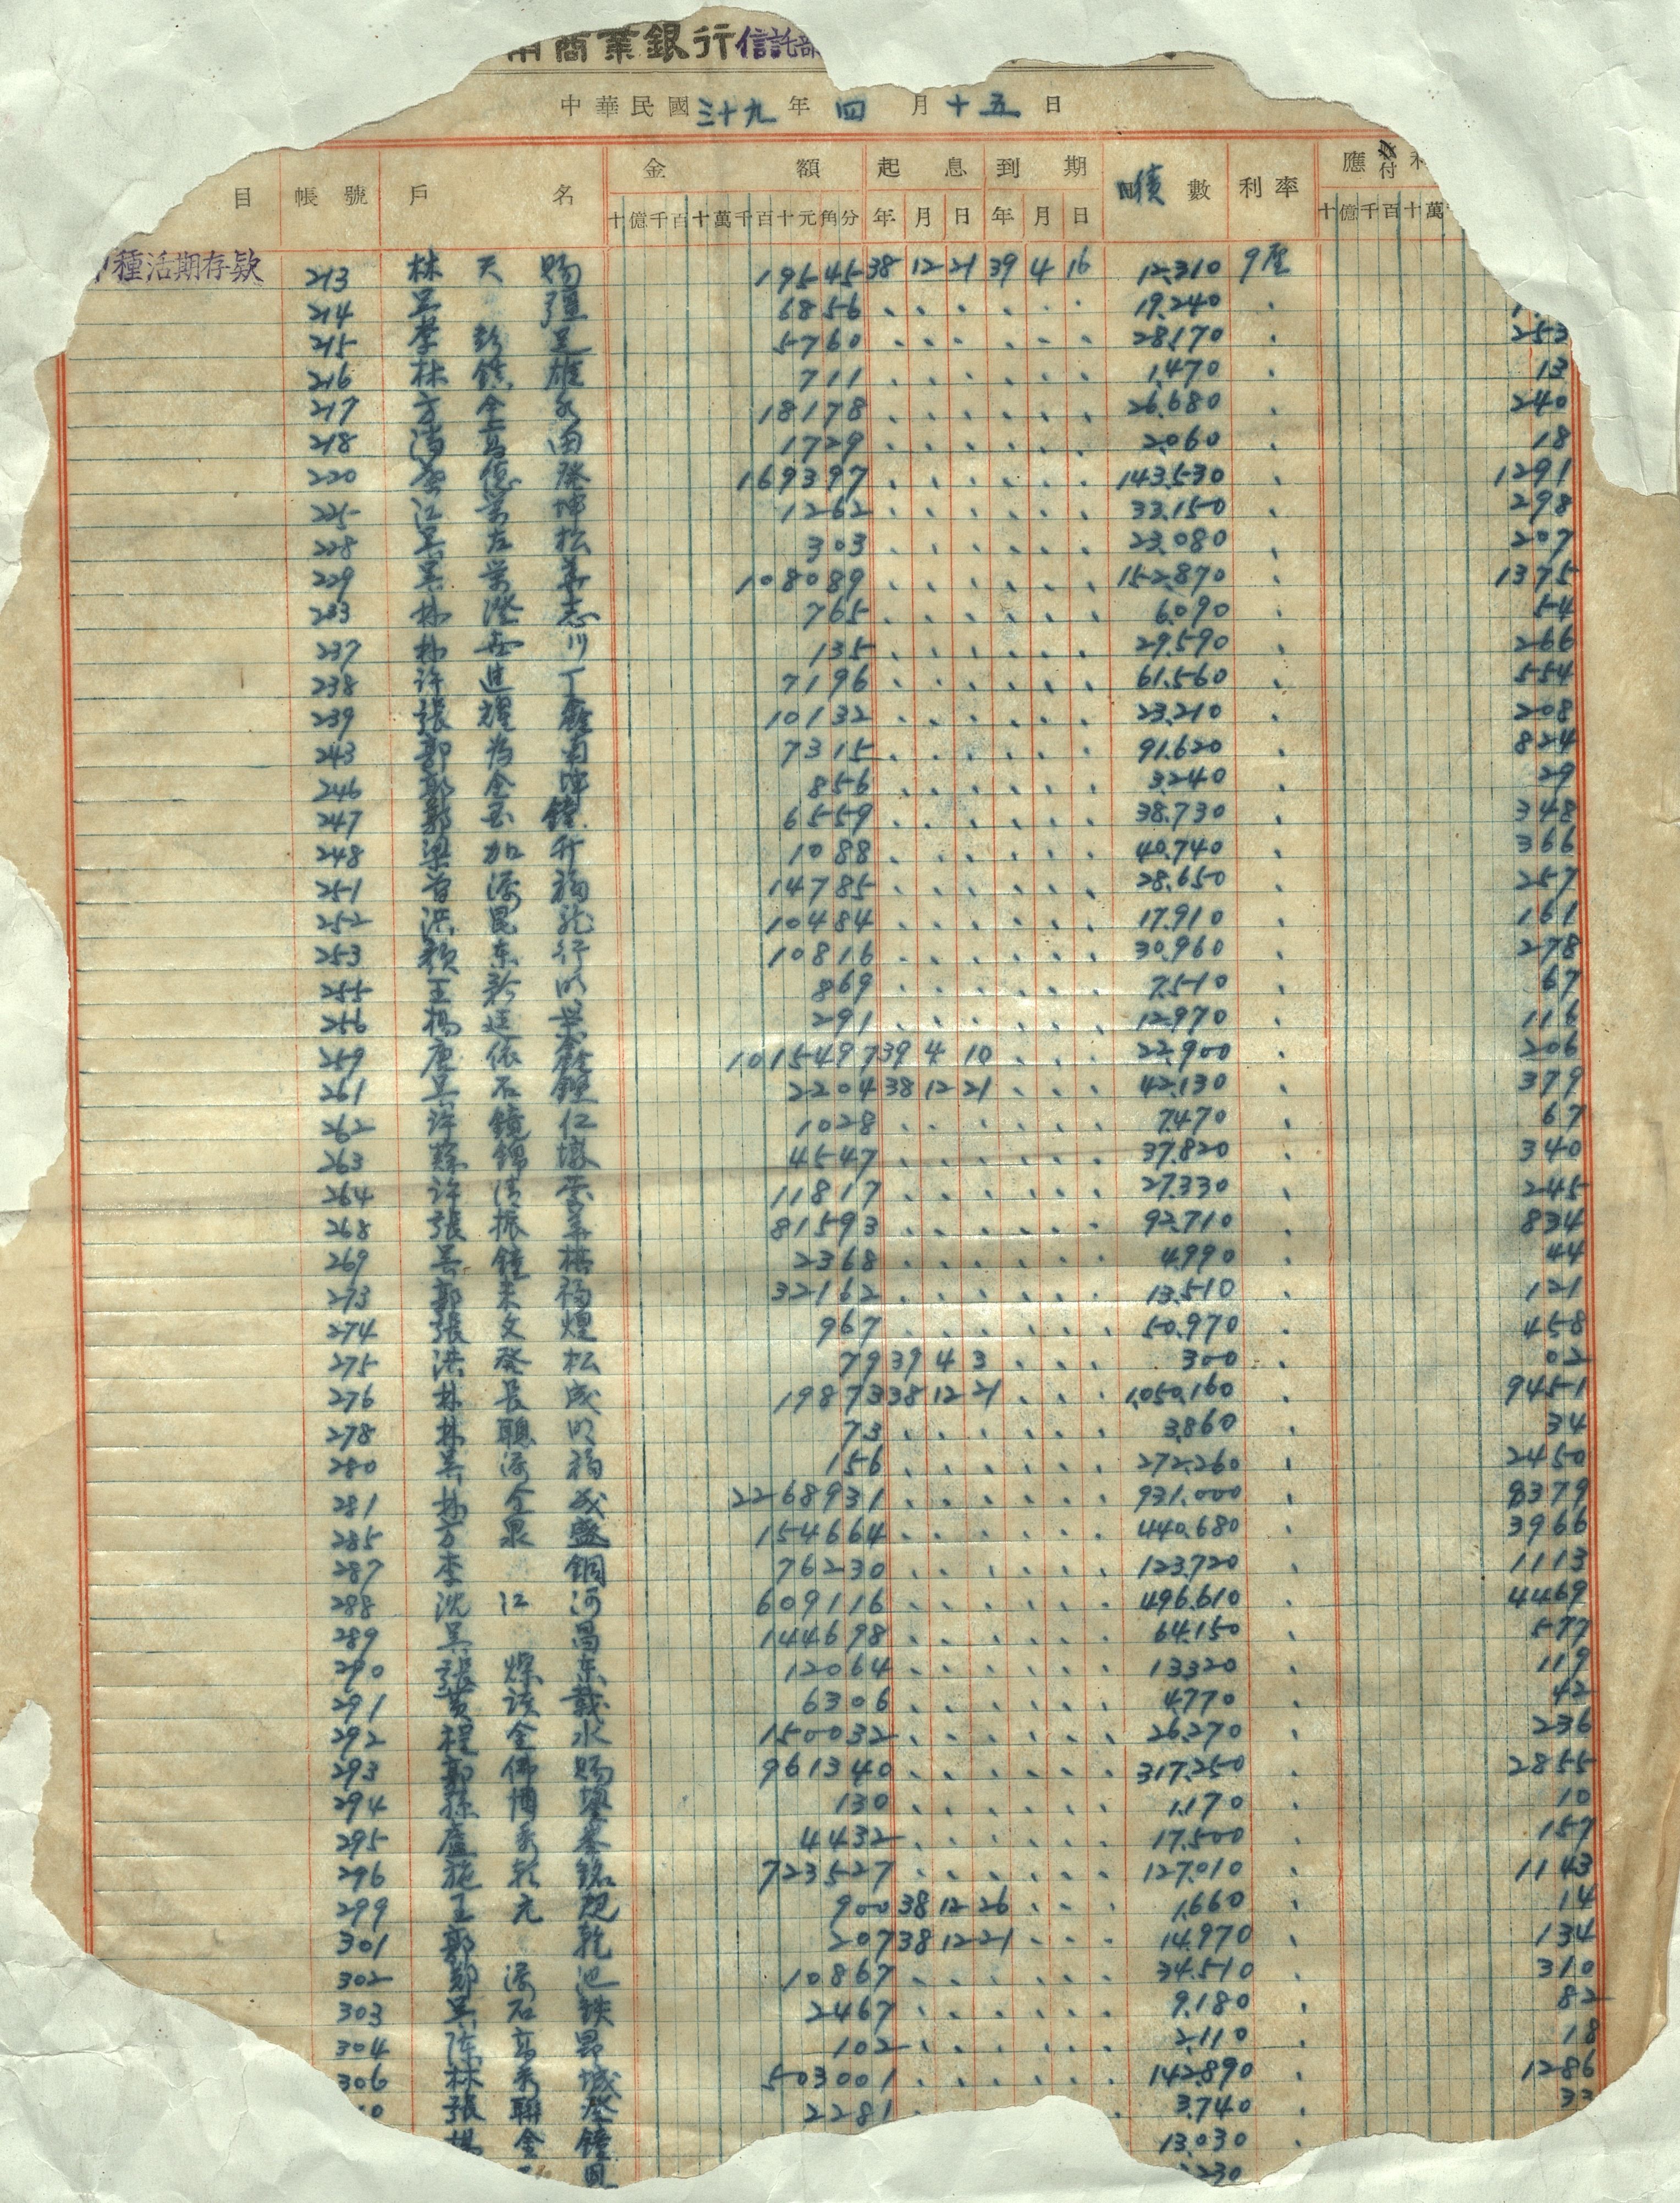 商業銀行信託部
中華民國三十九年四月十五日
目 帳號 戶名 金額 起息 到期 積數 利率 應付利
十億千百十萬千百十元角分 年月日 年月日 十億千百十萬
種活期存款 213 林天賜 19545 38 12 21 39 4 16 12.310 9厘
214 吳 彊 6856 〃 〃 〃 〃 〃 〃 19.240 〃
215 李彭足 5760 〃 〃 〃 〃 〃 〃 28.170 〃 253
216 林鎮雄 711 〃 〃 〃 〃 〃 〃 1.470 〃 13
217 方金水 18178 〃 〃 〃 〃 〃 〃 26.680 〃 240
218 1729 〃 〃 〃 〃 〃 〃 2.060 〃 18
220 德發 169397 〃 〃 〃 〃 〃 〃 143.530 〃 1291
225 江 坤 1262 〃 〃 〃 〃 〃 〃 33.150 〃 298
228 吳 松 303 〃 〃 〃 〃 〃 〃 23.080 〃 207
229 吳 108089 〃 〃 〃 〃 〃 〃 152.870 〃 1375
233 林澄志 765 〃 〃 〃 〃 〃 〃 6.090 〃 54
237 林 川 135 〃 〃 〃 〃 〃 〃 29.590 〃 266
238 許進丁 7196 〃 〃 〃 〃 〃 〃 61.560 〃 554
239 張耀鑫 10132 〃 〃 〃 〃 〃 〃 23.210 〃 208
243 郭為 7315 〃 〃 〃 〃 〃 〃 91.620 〃 824
246 郭金坤 856 〃 〃 〃 〃 〃 〃 3.240 〃 29
247 郭 6559 〃 〃 〃 〃 〃 〃 38.730 〃 348
248 梁加升 1088 〃 〃 〃 〃 〃 〃 40.740 〃 366
251 曾添福 14785 〃 〃 〃 〃 〃 〃 28.650 〃 257
252 洪昆龍 10484 〃 〃 〃 〃 〃 〃 17.910 〃 161
253 顏東行 10816 〃 〃 〃 〃 〃 〃 30.960 〃 278
255 王彩明 869 〃 〃 〃 〃 〃 〃 7.510 〃 67
256 楊廷 291 〃 〃 〃 〃 〃 〃 12.970 〃 116
259 唐依 1015497 39 4 10 〃 〃 〃 22.900 〃 206
261 吳石 2204 38 12 21 〃 〃 〃 42.130 〃 379
262 許鏡仁 1028 〃 〃 〃 〃 〃 〃 7.470 〃 67
263 蘇錦墩 4547 〃 〃 〃 〃 〃 〃 37.820 〃 340
264 許清雲 11817 〃 〃 〃 〃 〃 〃 27.330 〃 245
268 張振 81593 〃 〃 〃 〃 〃 〃 92.710 〃 834
269 吳鐘 2368 〃 〃 〃 〃 〃 〃 4.990 〃 44
273 郭來福 32162 〃 〃 〃 〃 〃 〃 13.510 〃 121
274 張文煌 967 〃 〃 〃 〃 〃 〃 50.970 〃 458
275 洪登松 79 39 4 3 〃 〃 〃 300 〃 02
276 林長成 19873 38 12 21 〃 〃 〃 1,050.160 〃 9451
278 林聰明 73 〃 〃 〃 〃 〃 〃 3.860 〃 34
280 吳添福 156 〃 〃 〃 〃 〃 〃 272.260 〃 2450
281 林全成 2268931 〃 〃 〃 〃 〃 〃 931.000 〃 8379
285 方泉盛 154664 〃 〃 〃 〃 〃 〃 440.680 〃 3966
287 李 銅 76230 〃 〃 〃 〃 〃 〃 123.720 〃 1113
288 沈江河 609116 〃 〃 〃 〃 〃 〃 496.610 〃 4469
289 吳 昌 144698 〃 〃 〃 〃 〃 〃 64.150 〃 577
290 張燦東 12064 〃 〃 〃 〃 〃 〃 13320 〃 119
291 黃 6306 〃 〃 〃 〃 〃 〃 4.770 〃 42
292 程金水 150032 〃 〃 〃 〃 〃 〃 26.270 〃 236
293 郭佛賜 961340 〃 〃 〃 〃 〃 〃 317.250 〃 2855
294 孫博 130 〃 〃 〃 〃 〃 〃 1.170 〃 10
295 盧秀 4432 〃 〃 〃 〃 〃 〃 17.500 〃 157
296 施乾銘 723527 〃 〃 〃 〃 〃 〃 127.010 〃 1143
299 王元 900 38 12 26 〃 〃 〃 1.660 〃 14
301 郭 乾 207 38 12 21 〃 〃 〃 14.970 〃 134
302 鄭添池 10867 〃 〃 〃 〃 〃 〃 34.510 〃 310
303 吳石鉄 2467 〃 〃 〃 〃 〃 〃 9.180 〃 82
304 陳高昂 102 〃 〃 〃 〃 〃 〃 2.110 〃 18
306 林秀城 503001 〃 〃 〃 〃 〃 〃 142.890 〃 1286
張聯登 2281 3.740 〃 33
楊金鐘 13.030 〃
230